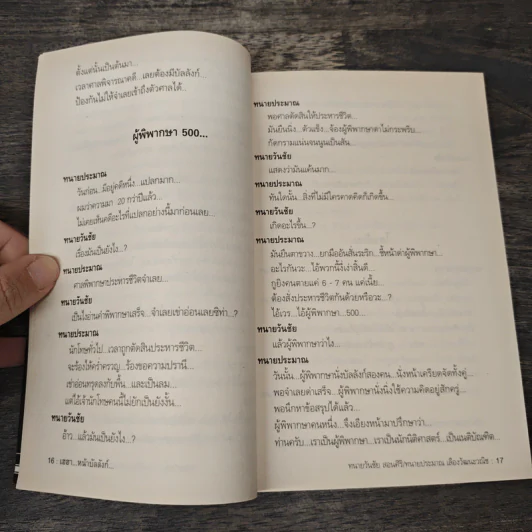 ตั้งแต่นั้นเป็นต้นมา...
เวลาศาลพิจารณาคดี...เลยต้องมีบัลลังก์...
ป้องกันไม่ให้จำเลยเข้าถึงตัวศาลได้...
ผู้พิพากษา 500...
ทนายประมาณ
วันก่อน..มีอยู่คดีหนึ่ง...แปลกมาก...
ผมว่าความมา 20 กว่าปีแล้ว...
ไม่เคยเห็นคดีอะไรที่แปลกอย่างนี้มาก่อนเลย...
ทนายวันชัย
เรื่องมันเป็นยังไง...?
ทนายประมาณ
ศาลพิพากษาประหารชีวิตจำเลย...
ทนายวันชัย
เป็นไงอ่านคำพิพากษาเสร็จ...จำเลยเข่าอ่อนเลยซิท่า...?
ทนายประมาณ
นักโทษทั่วไป...เวลาถูกตัดสินประหารชีวิต...
จะร้องไห้คร่ำครวญ...ร้องขอความปรานี...
เข่าอ่อนทรุดลงกับพื้น...และเป็นลม...
แต่ไอ้เจ้านักโทษคนนี้ไม่ยักเป็นยังงั้น...
ทนายวันชัย
อ้าว...แล้วมันเป็นยังไง...?
16 : เฮฮา...หน้าบัลลังก์...
ทนายประมาณ
พอศาลตัดสินให้ประหารชีวิต...
มันยืนนิ่ง...ตัวแข็ง...จ้องผู้พิพากษาตาไม่กระพริบ...
กัดกรามแน่นจนนูนเป็นสัน...
ทนายวันชัย
แสดงว่ามันแค้นมาก...
ทนายประมาณ
ทันใดนั้น...สิ่งที่ไม่มีใครคาดคิดก็เกิดขึ้น...
ทนายวันชัย
เกิดอะไรขึ้น...?
ทนายประมาณ
มันยืนตาขวาง...ยกมืออันสั่นระริก...ชี้หน้าด่าผู้พิพากษา...
อะไรกันวะ...ไอ้พวกนี้งี่เง่าสิ้นดี
กูยิงคนตายแค่ 6 - 7 คน แค่เนี้ย
ต้องสั่งประหารชีวิตกันด้วยหรือวะ...?
ไอ้เวร...ไอ้ผู้พิพากษา...500...
ทนายวันชัย
แล้วผู้พิพากษาว่าไง...
ทนายประมาณ
วันนั้น...ผู้พิพากษานั่งบัลลังก์สองคน...นั่งหน้าเครียดจัดทั้งคู่...
พอจำเลยด่าเสร็จ...ผู้พิพากษานั่งนิ่งใช้ความคิดอยู่สักครู่...
พอนึกหาข้อสรุปได้แล้ว...
ผู้พิพากษาคนหนึ่ง...จึงเอียงหน้ามาปรึกษาว่า...
ท่านครับ...เราเป็นผู้พิพากษา...เราเป็นนักนิติศาสตร์...เป็นเนติบัณฑิต...
ทนายวันชัย สอนศิริ/ทนายประมาณ เลืองวัฒนะวณิช : 17